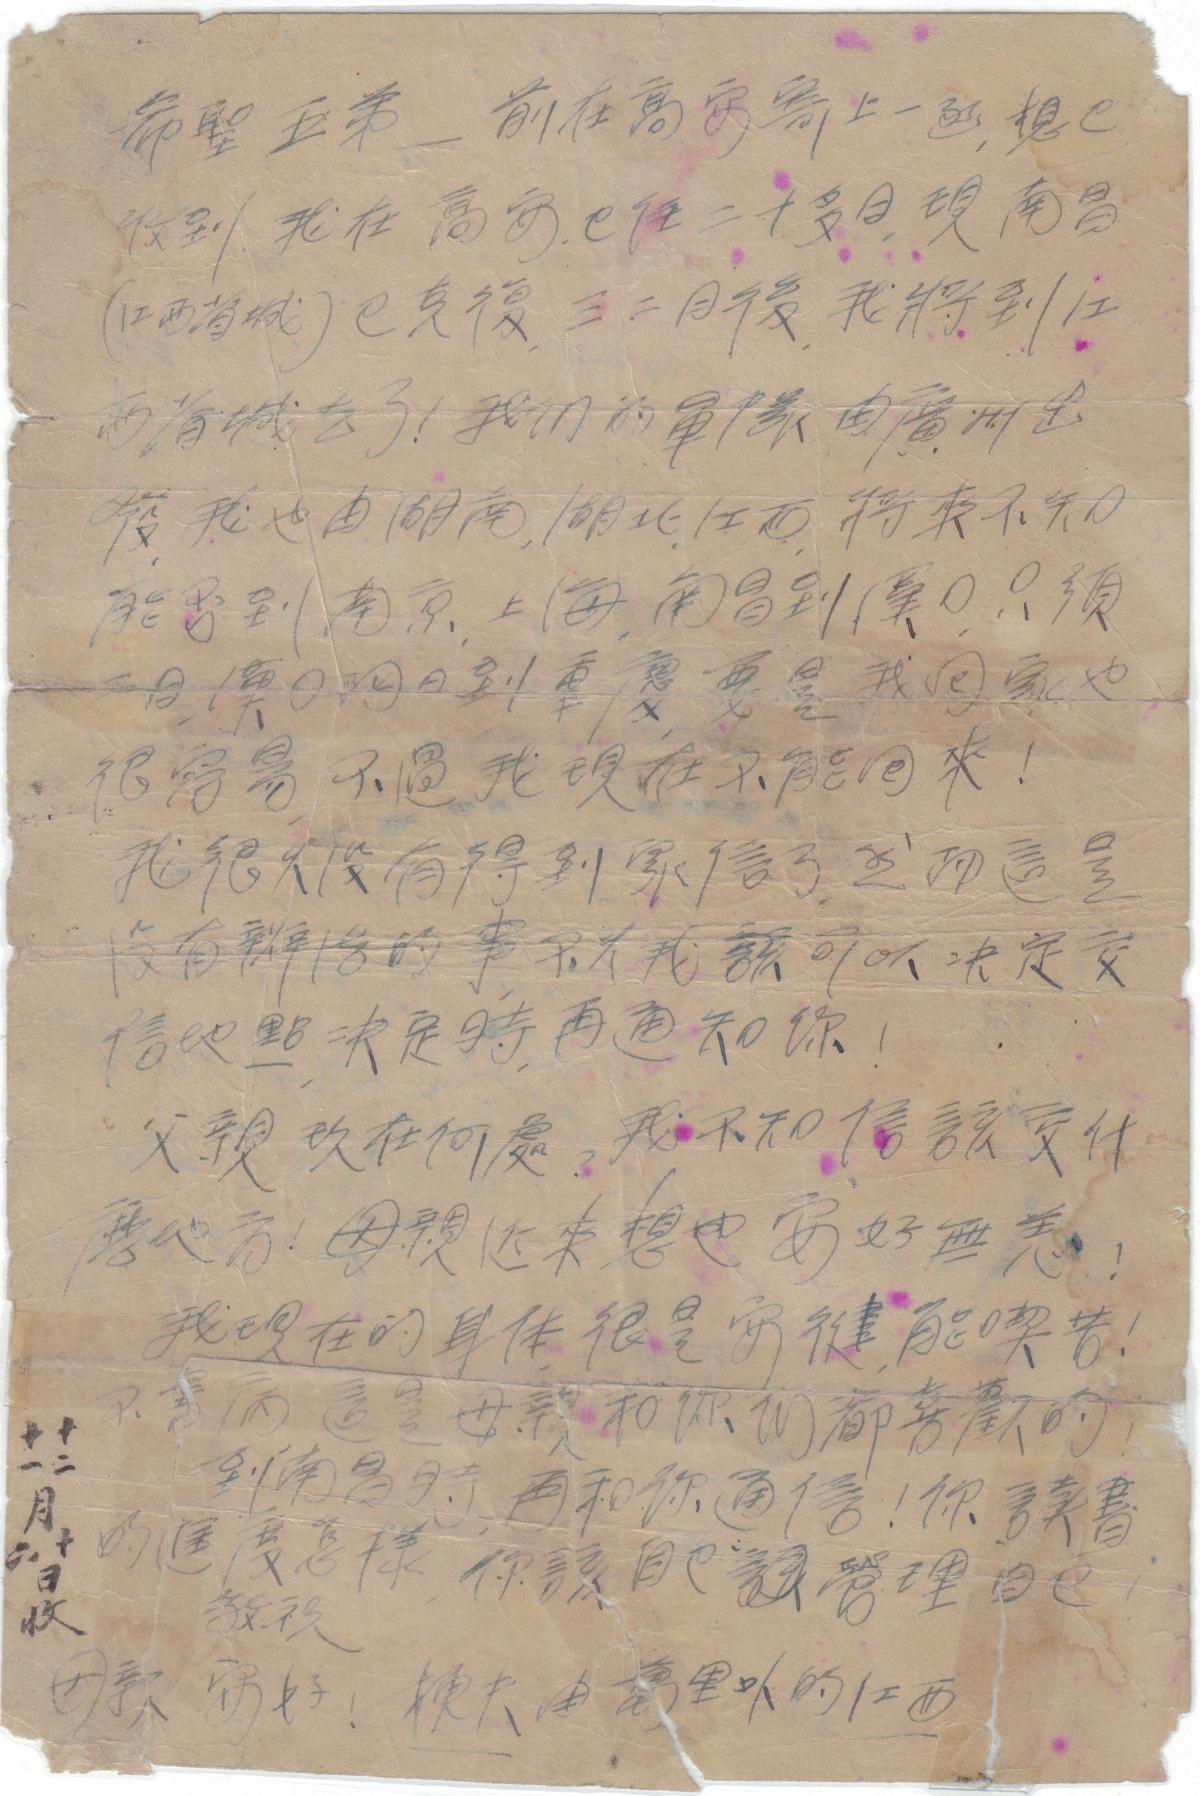 希聖五弟_前在高安寄上一函,想已
收到.我在高安.已住二十多日,現南昌
(江西首城)已克復,三二日後,我將到江
西首城去了!我们的軍隊由廣州出
發,我也由湖南,湖北,江西,將來不知
能否到南京,上海,南昌到漢口,只須
一日,漢口四日到重慶,要是我回家也
很容易,不過我現在不能回來!
我很久沒有得到家信了,然而這是
沒有辦法的事,不久我該可以決定交
信地點,決定時,再通知你!
父親現在何處?我不知信該交什
麼地方!母親近來想也安好無恙!
我現在的身体很是安健,能喫苦!
不害病,這是母親和你们都喜歡的!
到南昌時,再和你通信!你讀書
的進度怎樣,你該自己管理自己!
敬祝
母親安好!梗夫由萬里外的江西
十二
十一月十六日收